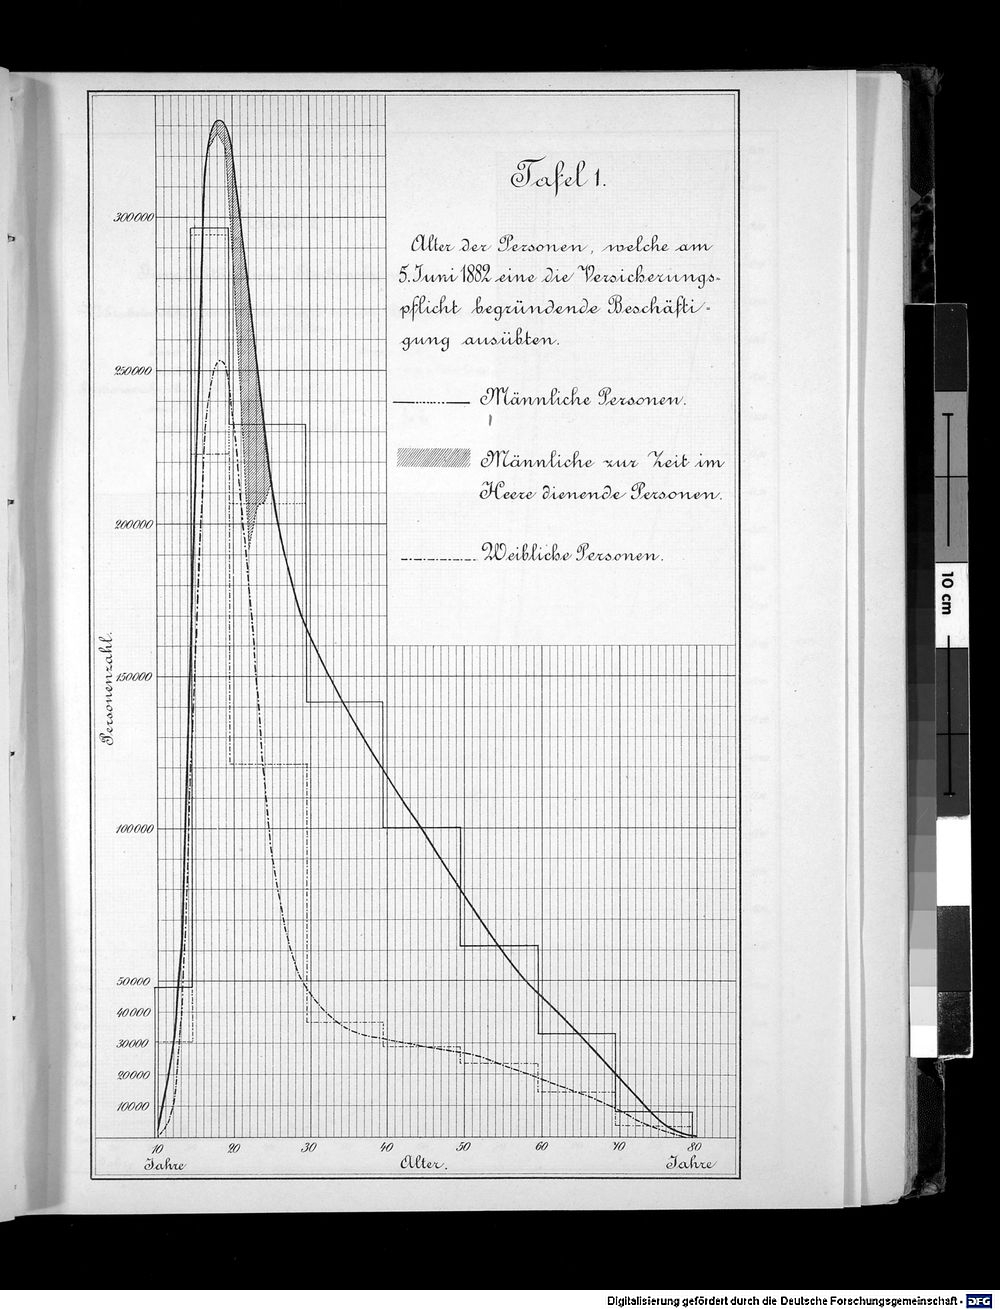 Tafel 1.
Alter der Personen, welche am
5. Juni 1882 eine die Versicherungs-
pflicht begründende Beschäfti-
gung ausübten.
Männliche Personen.
Männliche zur Zeit im
Heere dienende Personen.
Weibliche Personen.
Personenzahl.
300000
250000
200000
150000
100000
50000
40000
30000
20000
10000
10 20 30 40 50 60 70 80
Jahre Alter. Jahre
10 cm
Digitalisierung gefördert durch die Deutsche Forschungsgemeinschaft - DFG